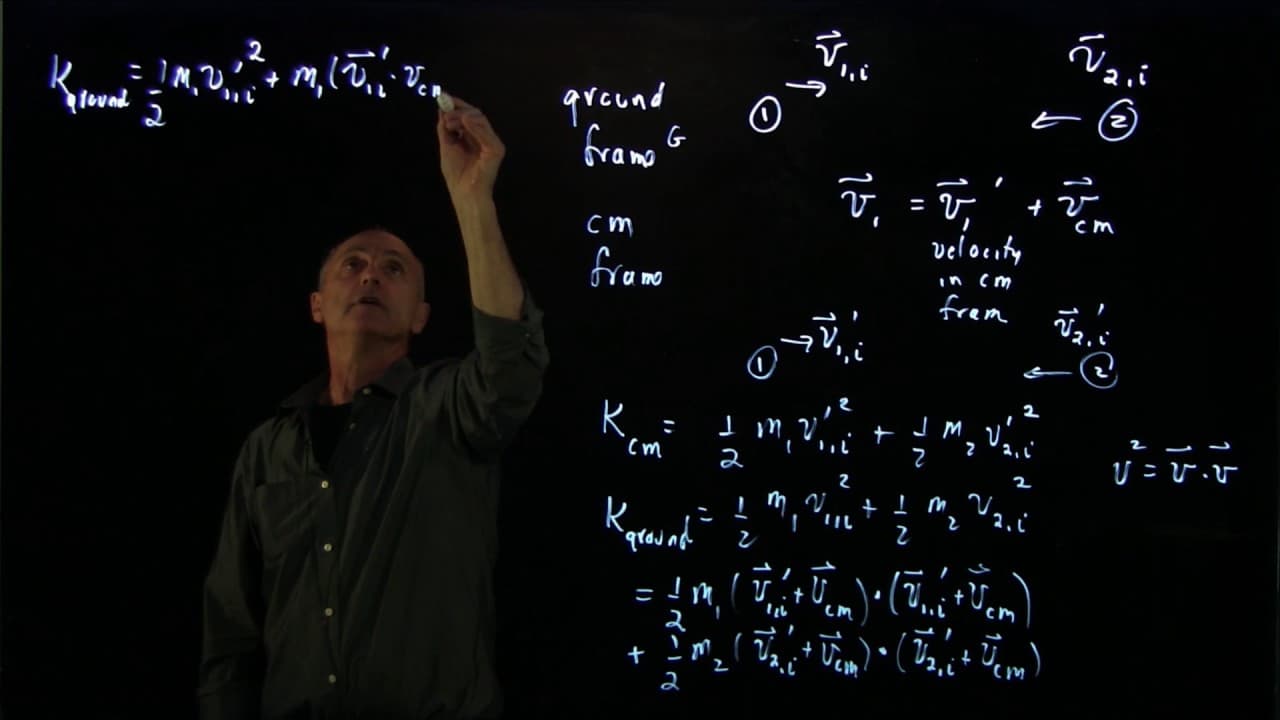 K_ground = 1/2 m₁ v′₁,ᵢ² + m₁ (v⃗′₁,ᵢ · v_cm
ground
frame G
cm
frame
v⃗₁,ᵢ
① →
v⃗₂,ᵢ
← ②
v⃗₁ = v⃗₁′ + v⃗_cm
velocity
in cm
fram
① → v⃗′₁,ᵢ
v⃗′₂,ᵢ
← ②
K_cm = 1/2 m₁ v′₁,ᵢ² + 1/2 m₂ v′₂,ᵢ²
v² = v⃗ · v⃗
K_ground = 1/2 m₁ v₁,ᵢ² + 1/2 m₂ v₂,ᵢ²
= 1/2 m₁ (v⃗′₁,ᵢ + v⃗_cm) · (v⃗′₁,ᵢ + v⃗_cm)
+ 1/2 m₂ (v⃗′₂,ᵢ + v⃗_cm) · (v⃗′₂,ᵢ + v⃗_cm)